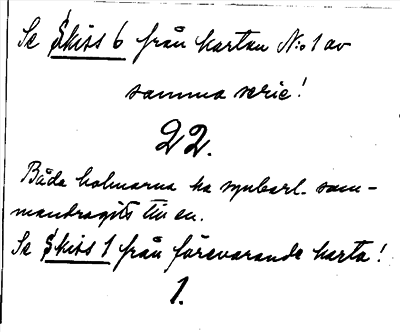 Se Skiss 6 från kartan N:o 1 av
samma serie!
22.
Båda holmarna ha synbarl. sam-
mandragits till en.
Se Skiss 1 från förevarande karta!
1.